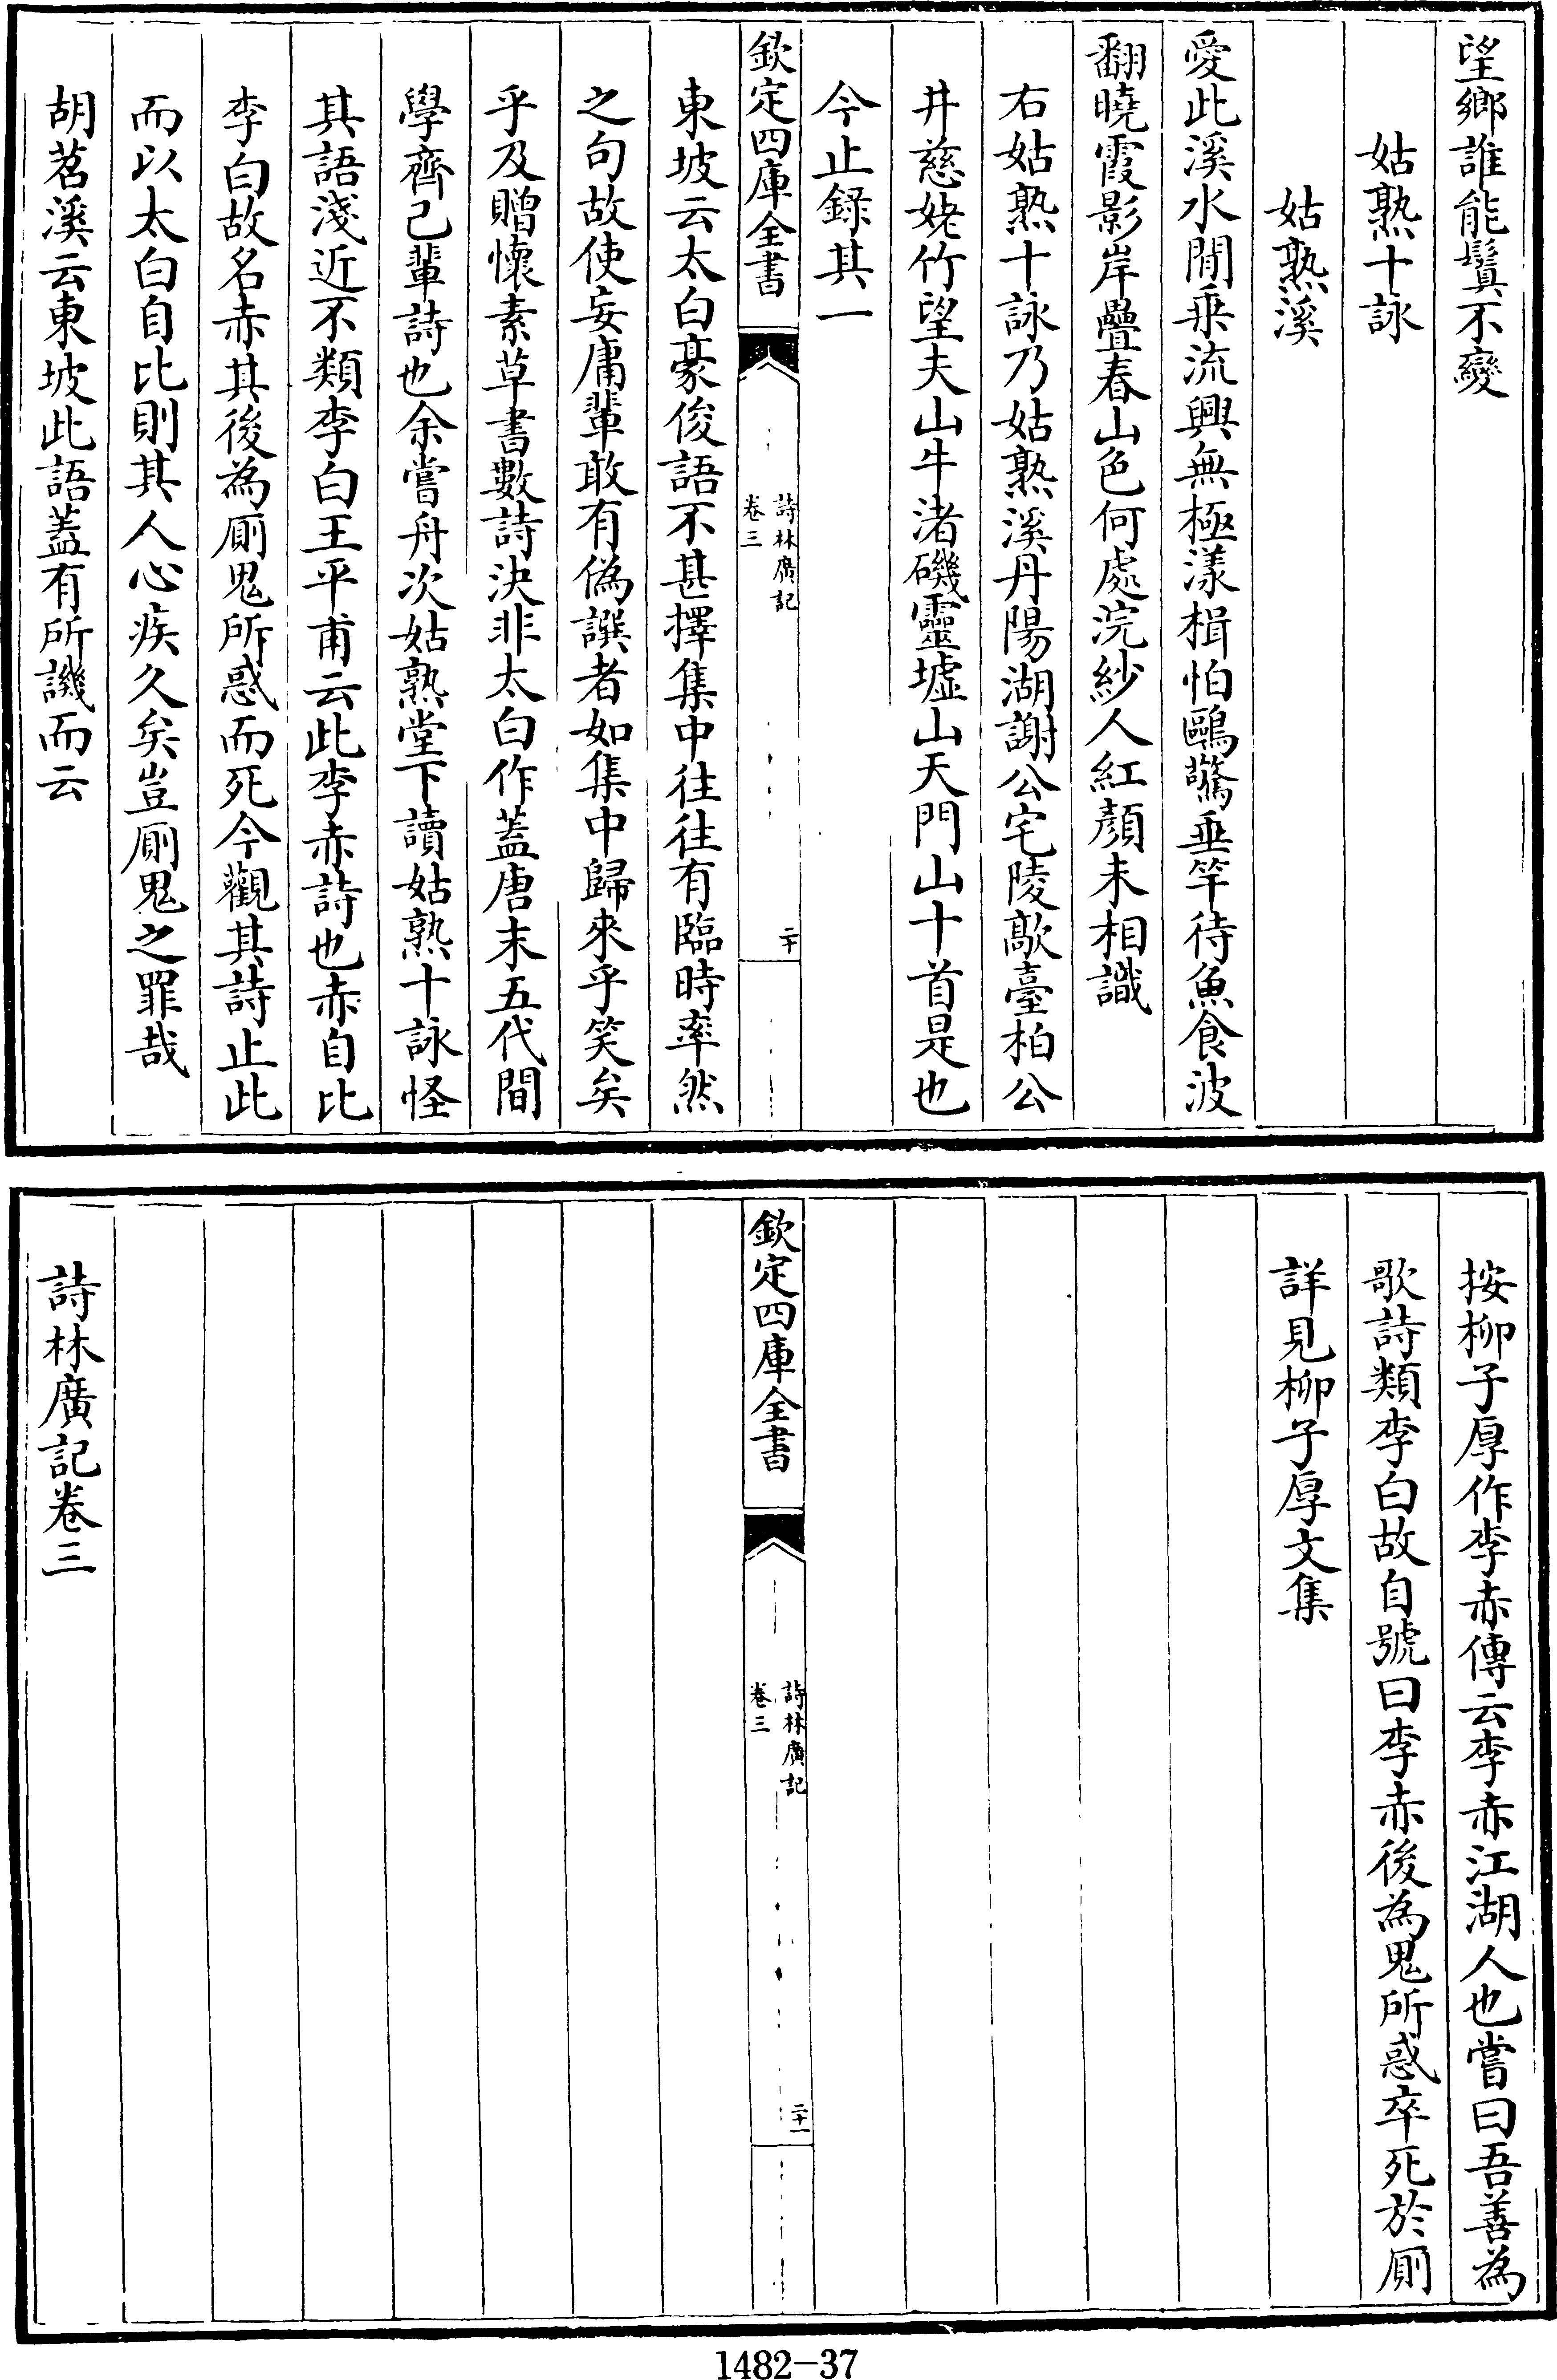 望鄉誰能鬒不變
姑熟十詠
姑熟溪
愛此溪水閒乗流興無極漾楫怕鷗驚垂竿待魚食波
翻曉霞影岸疊春山色何處浣紗人紅顏未相識
右姑熟十詠乃姑熟溪丹陽湖謝公宅陵歊臺柏公
井慈姥竹望夫山牛渚磯靈墟山天門山十首是也
今止錄其一
欽定四庫全書
詩林廣記
卷三
二十
東坡云太白豪俊語不甚擇集中往往有臨時率然
之句故使妄庸輩敢有偽譔者如集中歸來乎笑矣
乎及贈懷素草書數詩決非太白作蓋唐末五代間
學齊己輩詩也余嘗舟次姑熟堂下讀姑熟十詠怪
其語淺近不類李白王平甫云此李赤詩也赤自比
李白故名赤其後為厠鬼所惑而死今觀其詩止此
而以太白自比則其人心疾久矣豈厠鬼之罪哉
胡苕溪云東坡此語蓋有所譏而云
按柳子厚作李赤傳云李赤江湖人也嘗曰吾善為
歌詩類李白故自號曰李赤後為鬼所惑卒死於厠
詳見柳子厚文集
欽定四庫全書
詩林廣記
卷三
二十一
詩林廣記卷三
1482-37